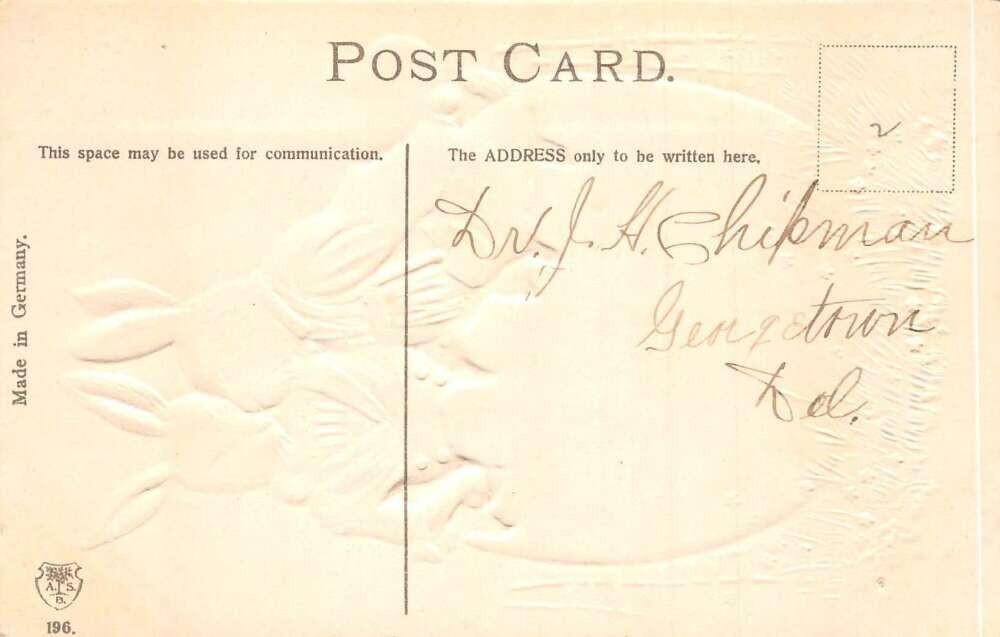 POST CARD.
This space may be used for communication.
The ADDRESS only to be written here.
2
Dr. J. H. Chipman
Georgetown
Del.
Made in Germany.
A. S.
B.
196.